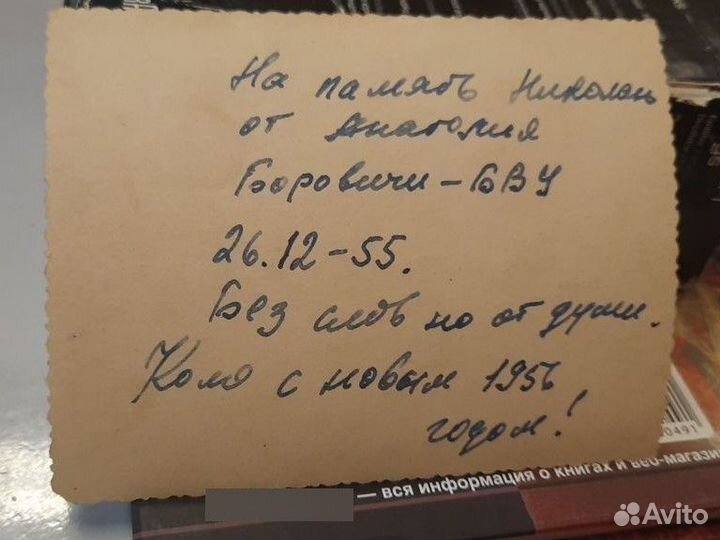 На память Николаю
от Анатолия
Боровичи-БВУ
26.12-55.
Без слов но от души.
Коля с новым 1956
годом!
0491
— вся информация о книгах и веб-магази
Avito